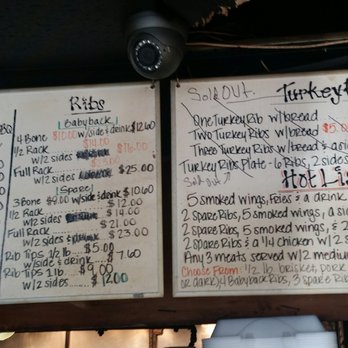 Ribs
Babyback
4 Bone $10.00 w/side & drink $12.60
1/2 Rack $14.00
w/2 sides $16.00
Full Rack
w/2 sides $25.00
Spare
3 Bone $9.00 w/side & drink $10.60
1/2 Rack $12.00
w/2 sides $14.00
Full Rack $21.00
w/2 sides $23.00
Rib Tips 1/2 lb $5.00
w/side & drink $7.60
Rib Tips 1 lb $9.00
w/2 sides $12.00
Sold Out Turkey
One Turkey Rib w/bread
Two Turkey Ribs w/bread $5.
Three Turkey Ribs w/bread & a
Turkey Ribs Plate - 6 Ribs, 2 sides
Sold out Hot Li
5 smoked wings, Fries & a drink
2 spare Ribs, 5 smoked wings, a
2 spare Ribs, 5 smoked wings, &
2 spare Ribs & a 1/4 chicken w/2
Any 3 meats served w/2 medium
Choose From: 1/2 lb brisket, pork
or dark, 4 Babyback Ribs, 3 spare Ribs